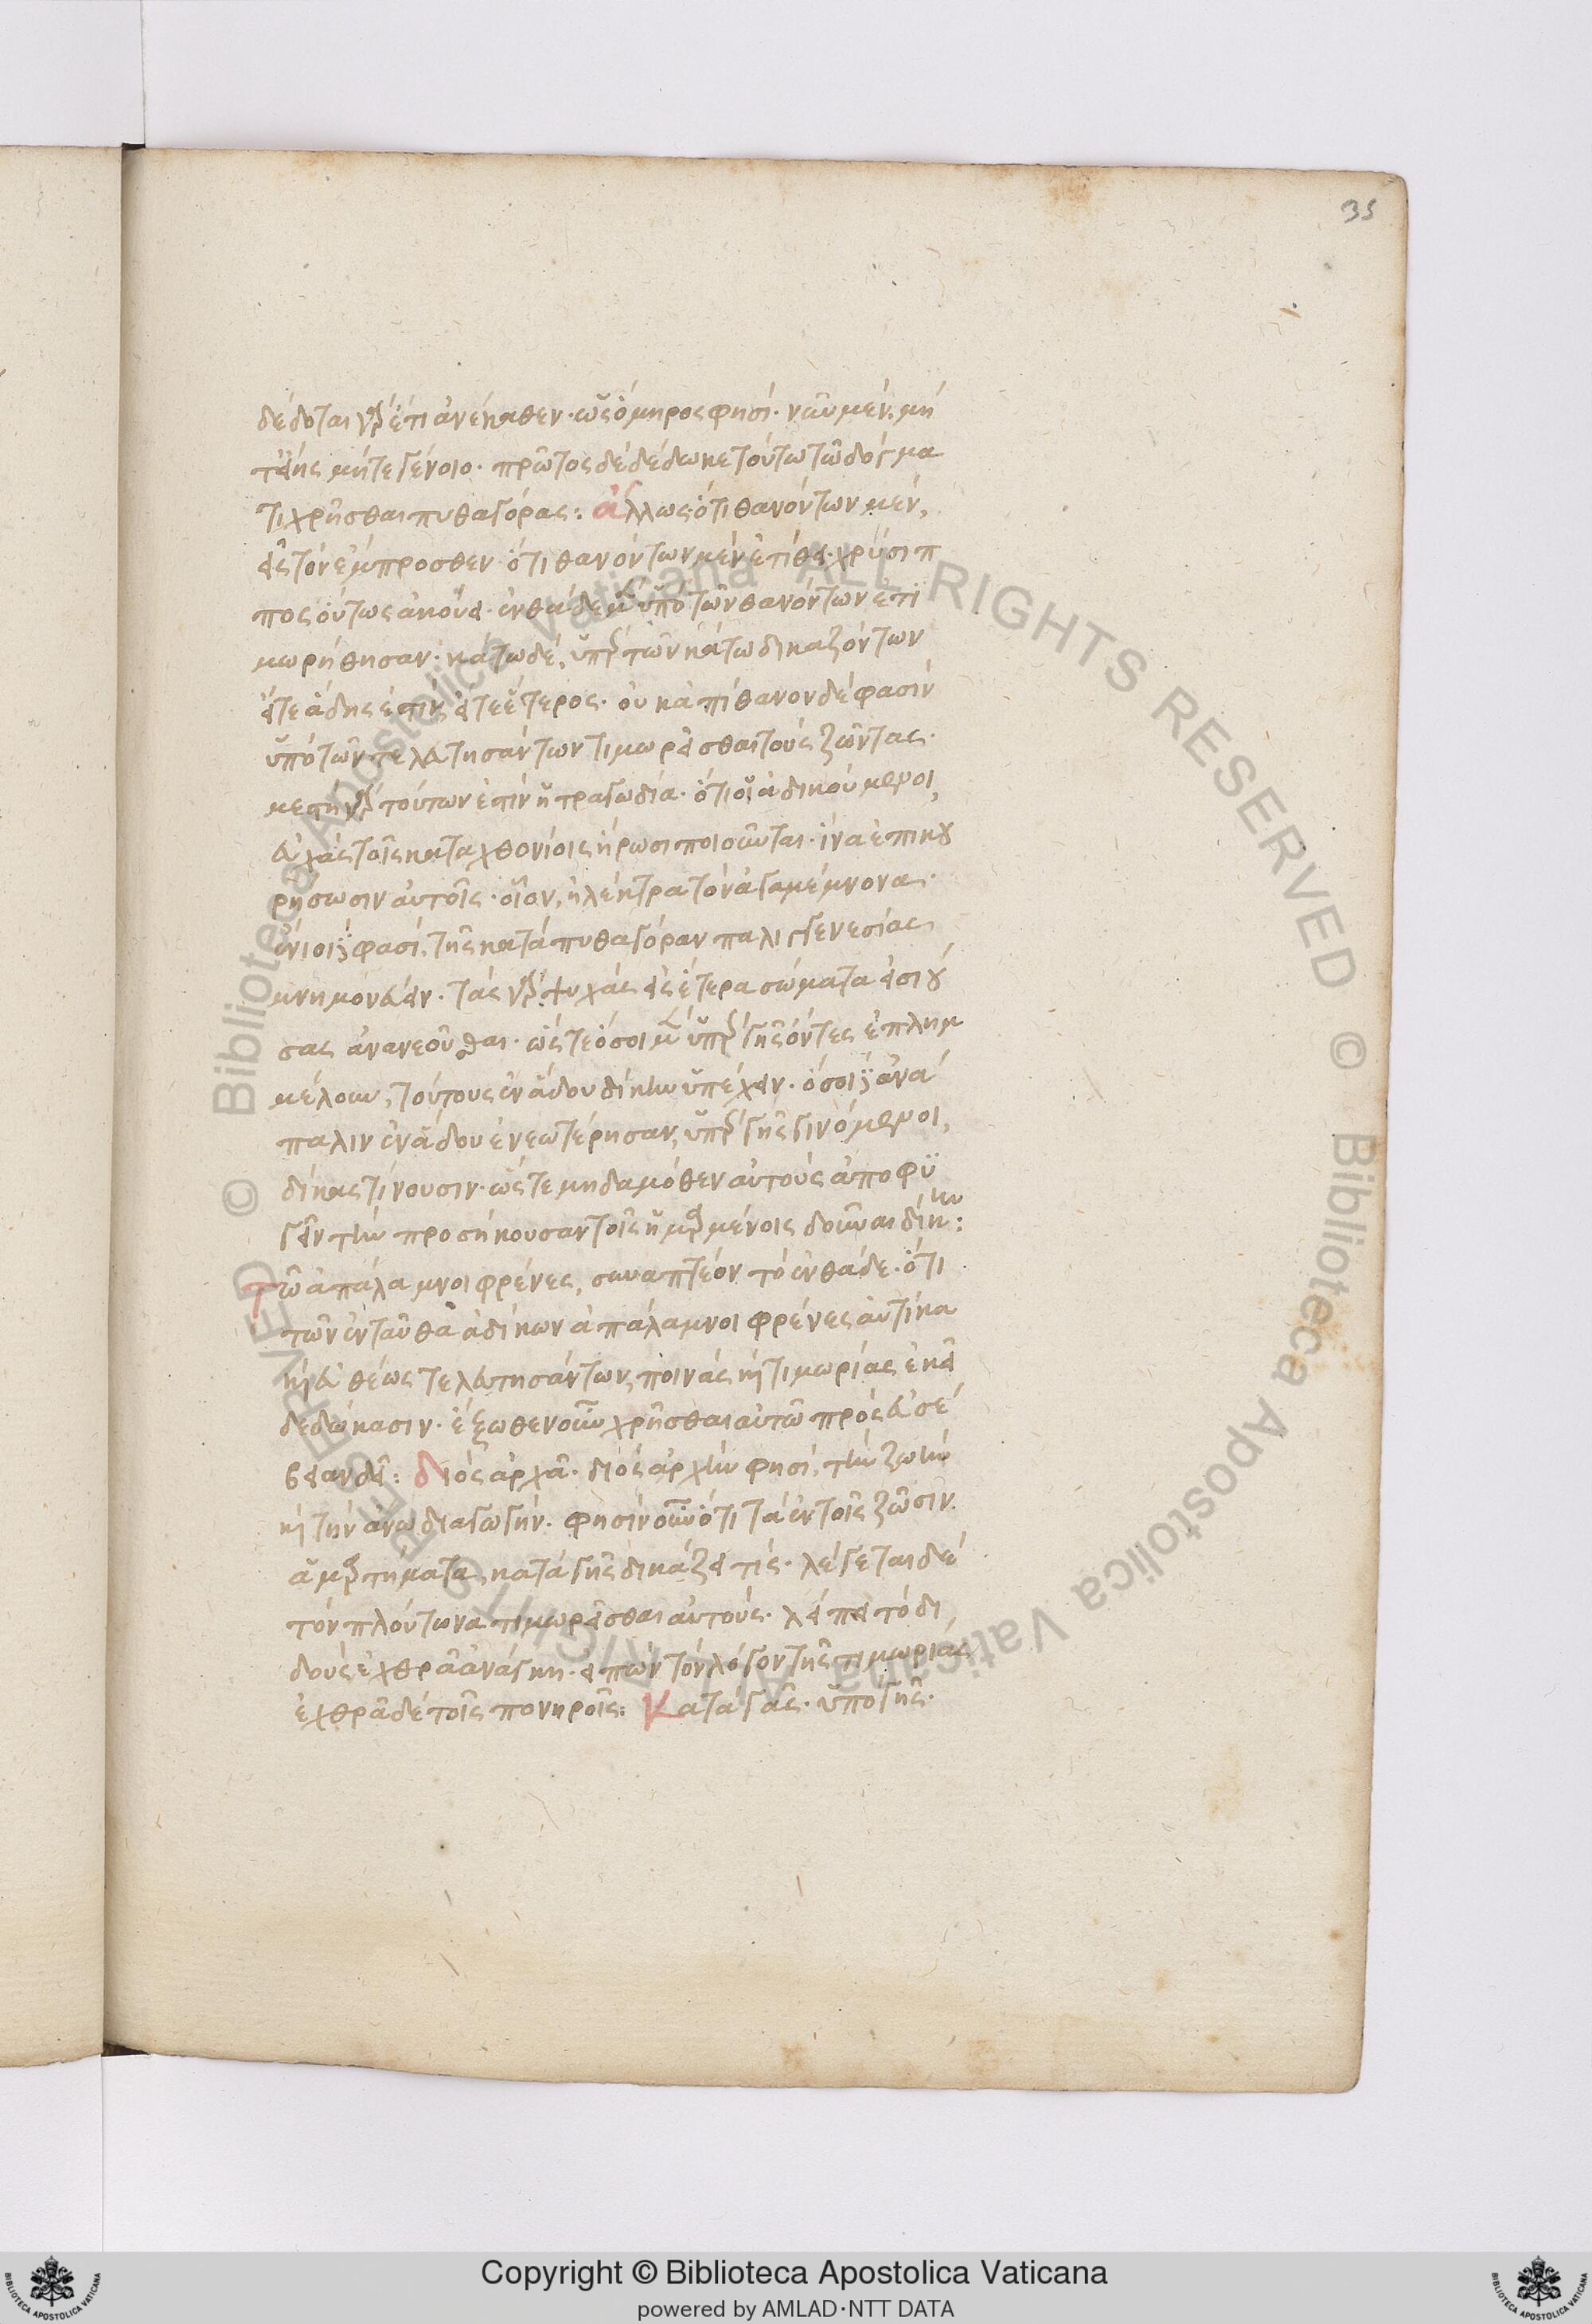 35
δέδοται γὰρ ἔτι ἀνέκαθεν· ὡς ὅμηρος φησί· νῦν μὲν μή
τ' εἴης μήτε γένοιο· πρῶτος δὲ δέδωκε τούτω τῶ δόγμα
τι χρῆσθαι πυθαγόρας: ἄλλως· ὅτι θανόντων μέν,
εἰς τὸν ἔμπροσθεν ὅτι θανόντων μὲν ἐτίθει· χρύσιπ
πος οὕτως ἀκούει· ἐνθάδε μὲν ὑπὸ τῶν θανόντων ἐτι
μωρήθησαν· κάτω δέ, ὑπὸ τῶν κάτω δικαζόντων
εἴτε ἅδης ἐστίν, εἴτε ἕτερος· οὐκ ἀπίθανον δέ φασιν
ὑπὸ τῶν τελευτησάντων τιμωρεῖσθαι τοὺς ζῶντας·
μεστὴ γὰρ τούτων ἐστὶν ἡ τραγωδία· ὅτι οἱ ἀδικούμενοι,
εὐχὰς τοῖς καταχθονίοις ἥρωσι ποιοῦνται· ἵνα ἐπικου
ρήσωσιν αὐτοῖς· οἷον, ἠλέκτρα τὸν ἀγαμέμνονα·
ἔνιοι δὲ φασί, τῆς κατὰ πυθαγόραν παλιγγενεσίας
μνημονεύειν· τὰς γὰρ ψυχὰς εἰς ἕτερα σώματα εἰσιού
σας ἀνανεοῦσθαι· ὥστε ὅσοι μὲν ὑπὲρ γῆς ὄντες ἐπλημ
μέλουν, τούτους ἐν ἅδου δίκην ὑπέχειν· ὅσοι δὲ ἀνά
παλιν ἐν ἅδου ἐνεωτέρησαν, ὑπὲρ γῆς γινόμενοι,
δίκας τίνουσιν· ὥστε μηδαμόθεν αὐτοὺς ἀποφυ
γεῖν τὴν προσήκουσαν τοῖς ἡμαρτημένοις δοῦναι δίκην:
Τῶ ἀπάλαμνοι φρένες, συναπτέον τὸ ἐνθάδε· ὅτι
τῶν ἐνταῦθα ἀδίκων ἀπάλαμνοι φρένες αὐτίκα
καὶ εὐθέως τελευτησάντων, ποινὰς καὶ τιμωρίας ἐκεῖ
δεδώκασιν· ἔξωθεν οὖν χρῆσθαι αὐτῶ πρὸς εὐσέ
βειαν δεῖ: διὸς ἀρχᾶ· διὸς ἀρχὴν φησί, τὴν ζωὴν
καὶ τὴν ἄνω διαγωγήν· φησὶν οὖν ὅτι τὰ ἐν τοῖς ζῶσιν
ἁμαρτήματα, κατὰ γῆς δικάζει τίς· λέγεται δὲ
τὸν πλούτωνα τιμωρεῖσθαι αὐτούς· λείπει τὸ δι
δοὺς ἐχθρᾶ ἀνάγκη· εἰπὼν τὸν λόγον τῆς τιμωρίας
ἐχθρᾶ δὲ τοῖς πονηροῖς: Κατὰ γᾶς· ὑπὸ γῆς·
Copyright © Biblioteca Apostolica Vaticana
powered by AMLAD·NTT DATA